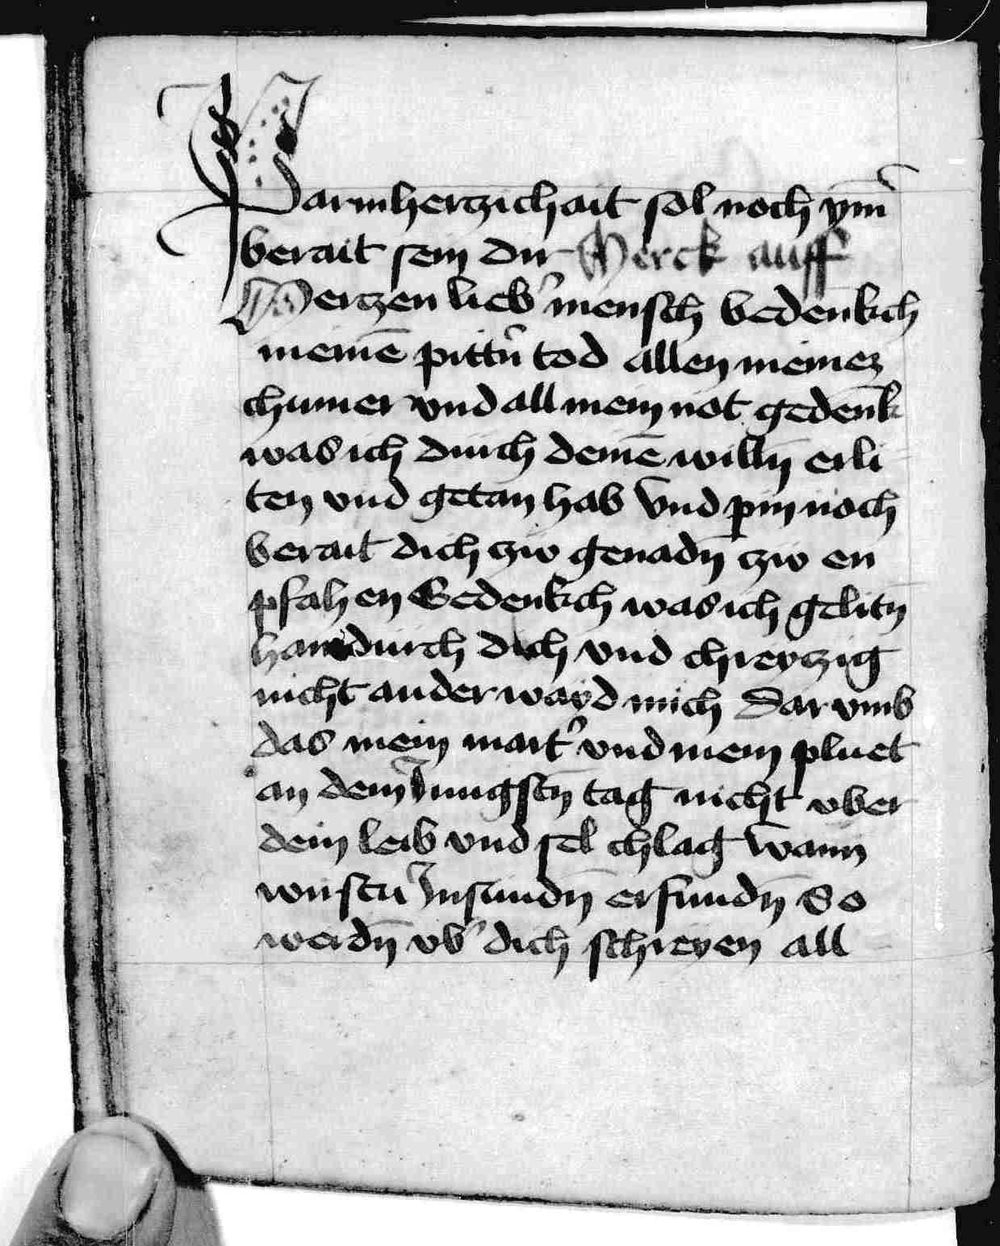 Parmherczichait sol noch ym̄
berait sein dir Merck auff
Merczen lieb' mensch bedenkch
meinē pittn̄ tod allen meinen
chumer vnd all mein not gedenk
was ich durch deinē willn̄ erli
ten vnd getan hab Vnd pin noch
berait dich czw genadn̄ czw en
pfahen Gedenkch was ich gelitn̄
han durch dich vnd chreyczig
nicht anderwayd mich Darvmb
das mein mart' vnd mein pluet
an dem Jungstn̄ tag nicht vber
dein leib vnd sel chlag Wann
wirstu Jn sundn̄ erfundn̄ So
werdn̄ vb' dich schreyen all